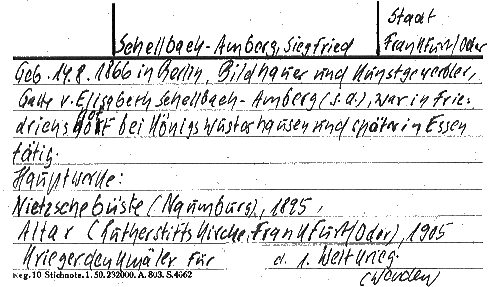 Stadt
Schellbach-Amberg, Siegfried Frankfurt/Oder
Geb. 14.8.1866 in Berlin, Bildhauer und Kunstgewerbler,
Gatte v. Elisabeth Schellbach-Amberg (s.d.), war in Frie-
drichshof bei Königswusterhausen und später in Essen
tätig.
Hauptwerke:
Nietzschebüste (Naumburg), 1895,
Altar (Lutherstiftskirche, Frankfurt/Oder), 1905
Kriegerdenkmäler für d. 1. Weltkrieg.
Reg. 10 Stichnote. 1. 50. 232000. A. 803. S. 4662
(wenden)